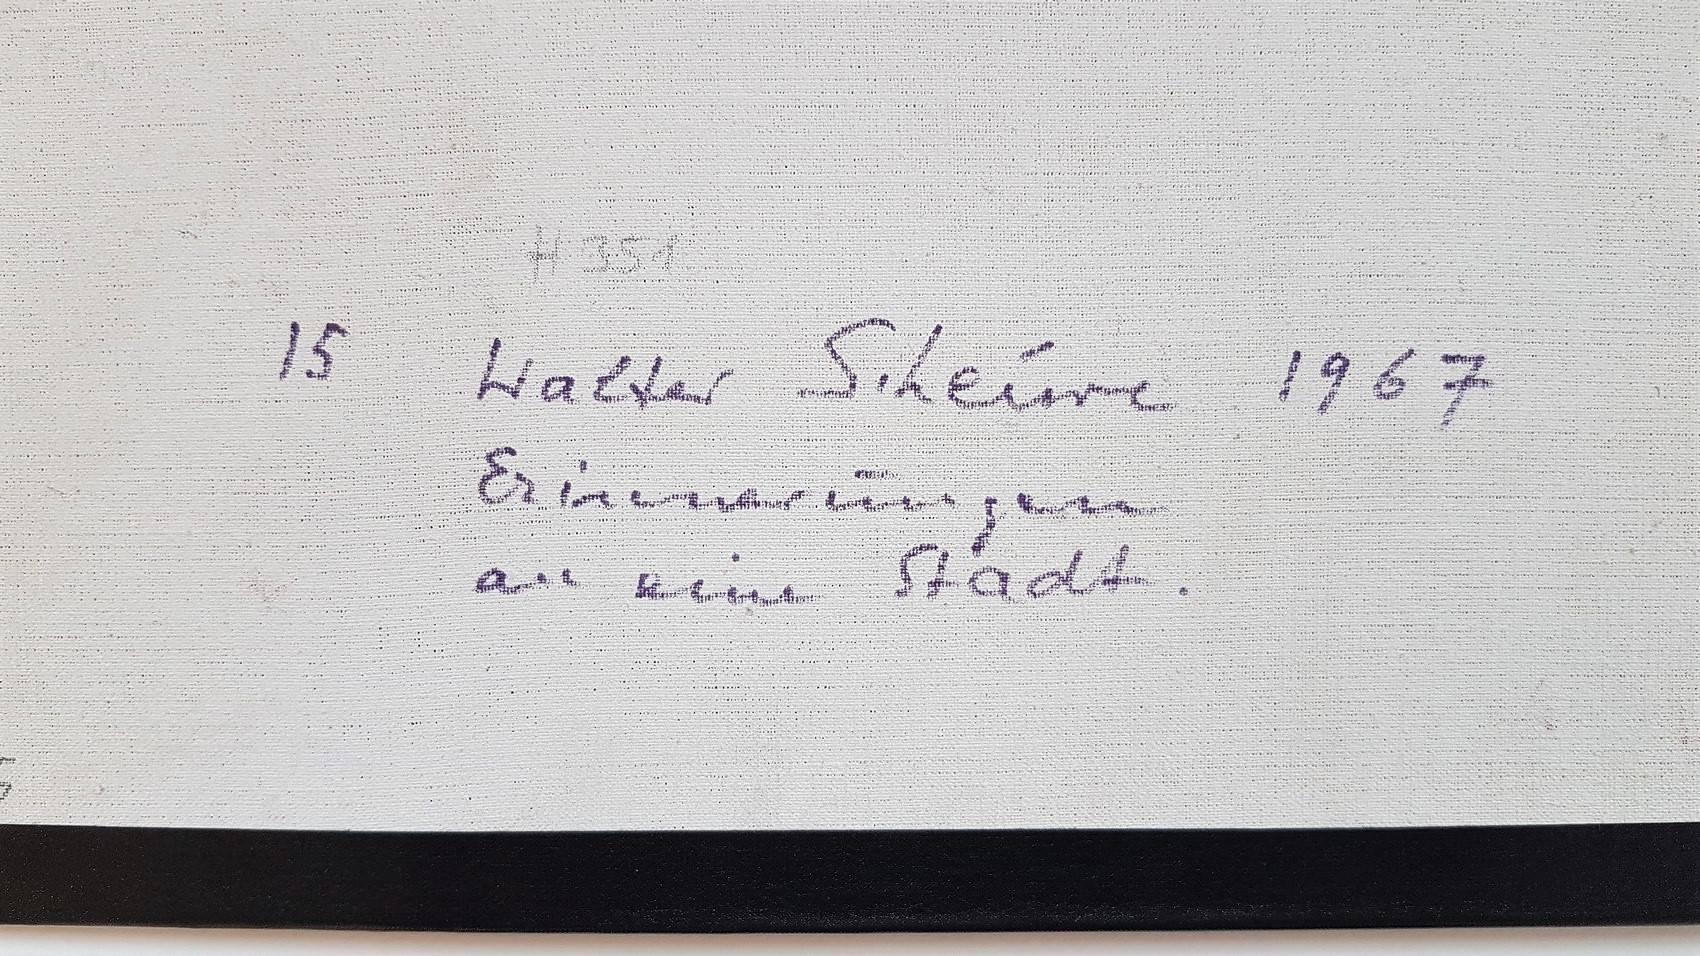 H 351
15 Walter Scheúve 1967
Erinnerūngen
an eine Stadt.
5